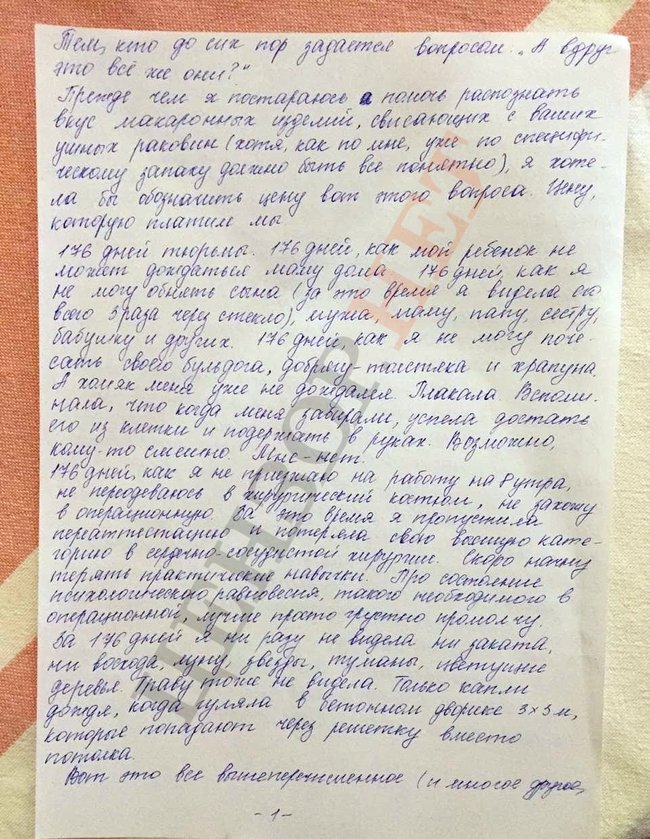 Тем, кто до сих пор задается вопросом: „А вдруг
это всё же они?"
Прежде чем я постараюсь помочь распознать
вкус макаронных изделий, свисающих с ваших
ушных раковин (хотя, как по мне, уже по специфи-
ческому запаху должно быть все понятно), я хоте-
ла бы обозначить цену вот этого вопроса. Цену,
которую платим мы.
176 дней тюрьмы. 176 дней, как мой ребенок не
может дождаться маму дома. 176 дней, как я
не могу обнять сына (за это время я видела его
всего 3 раза через стекло), мужа, маму, папу, сестру,
бабушку и других. 176 дней как я не могу поче-
сать своего бульдога, добрягу-толстяка и храпуна.
А хомяк меня уже не дождался. Плакала. Вспоми-
нала, что когда меня забирали, успела достать
его из клетки и подержать в руках. Возможно,
кому-то смешно. Мне-нет.
176 дней, как я не приезжаю на работу на 8 утра,
не переодеваюсь в хирургический костюм, не захожу
в операционную. За это время я пропустила
переаттестацию и потеряла свою высшую кате-
горию в сердечно-сосудистой хирургии. Скоро начну
терять практические навыки. Про состояние
психологического равновесия, такого необходимого в
операционной, лучше просто грустно промолчу.
За 176 дней я ни разу не видела ни заката,
ни восхода, луну, звезды, туманы,
деревья. Траву тоже не видела. Только капли
дождя, когда гуляла в бетонном дворике 3×3 м,
которые попадают через решетку вместо
потолка.
Вот это все вышеперечисленное (и многое другое,
-1-
ЦЕНЗОР НЕТ